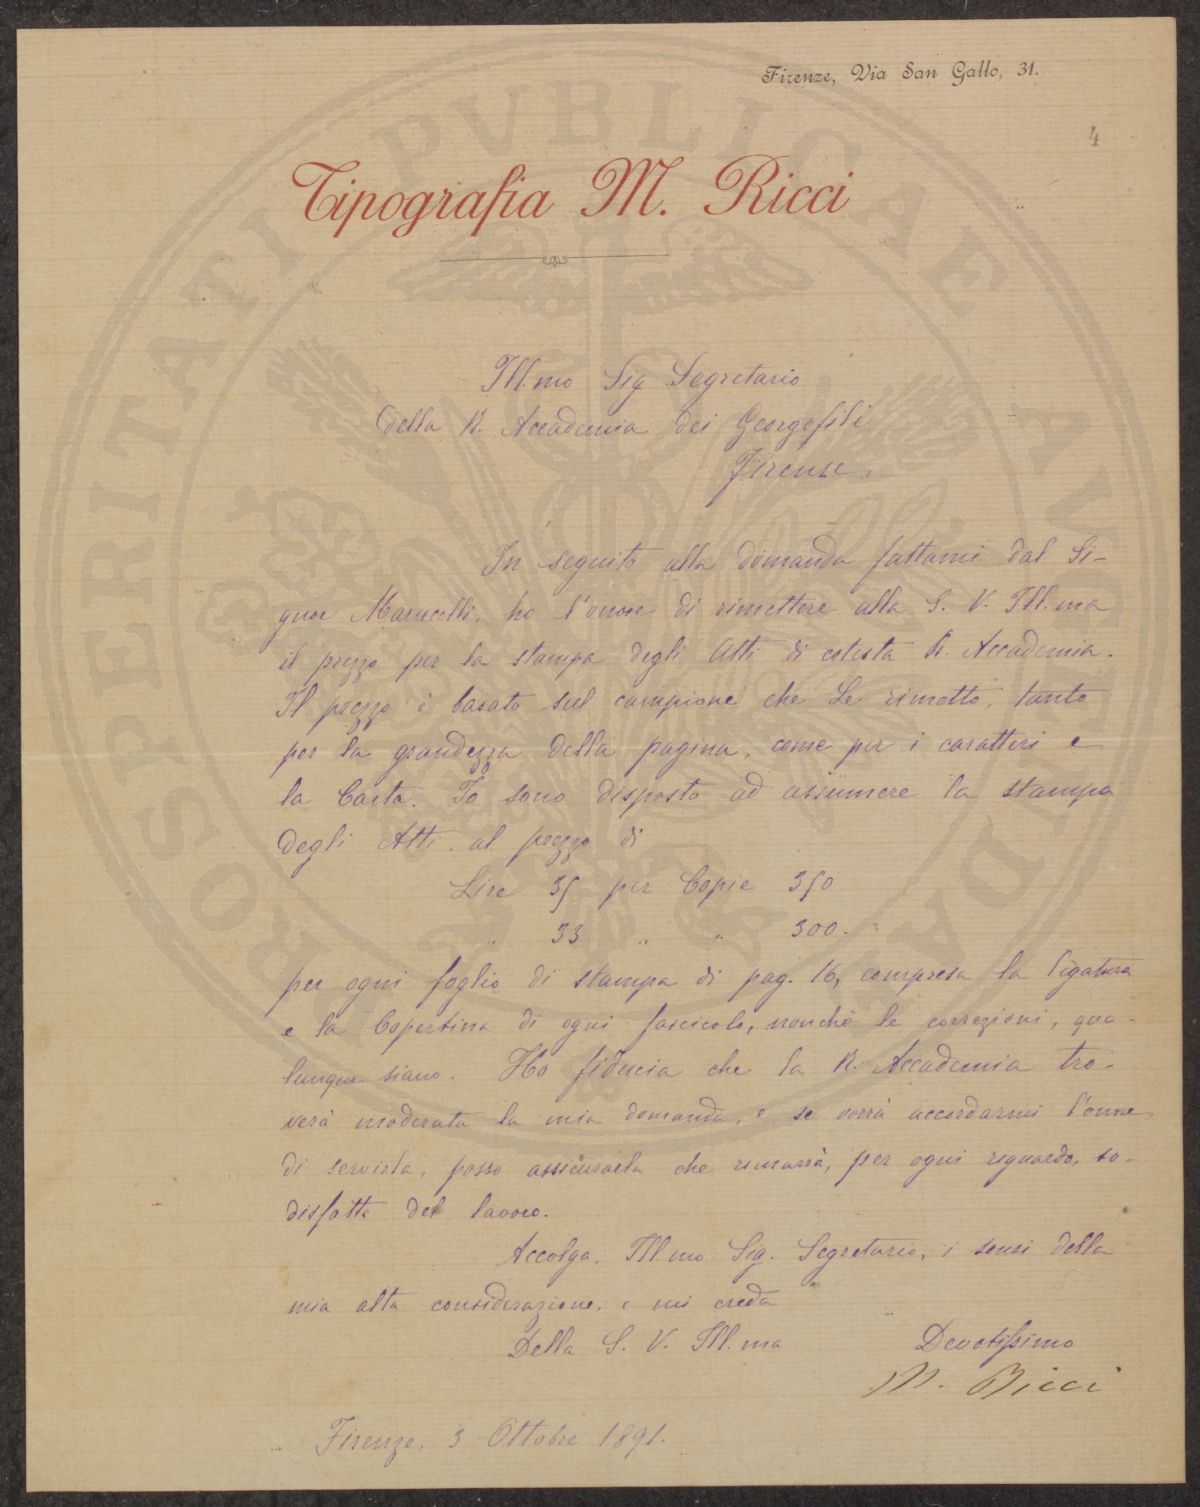 Firenze, Via San Gallo, 31.
4
Tipografia M. Ricci
PROSPERITATI PUBLICAE AUGENDAE
Ill.mo Sig Segretario
della R. Accademia dei Georgofili
Firenze.
In seguito alla domanda fattami dal Si-
gnor Marucelli, ho l'onore di rimettere alla S. V. Ill.ma
il prezzo per la stampa degli Atti di cotesta R. Accademia.
Il prezzo è basato sul campione che Le rimetto, tanto
per la grandezza della pagina, come per i caratteri e
la Carta. Io sono disposto ad assumere la stampa
degli Atti al prezzo di
Lire 35 per Copie 350
" 33 " " 300.
per ogni foglio di stampa di pag. 16, compresa la ligatura
e la Copertina di ogni fascicolo, nonchè le correzioni, qua-
lunque siano. Ho fiducia che la R. Accademia tro-
verà moderata la mia domanda, e se vorrà accordarmi l'onore
di servirla, posso assicurarla che rimarrà, per ogni riguardo, so-
disfatta del lavoro.
Accolga, Ill.mo Sig. Segretario, i sensi della
mia alta considerazione, e mi creda
Della S. V. Ill.ma Devotissimo
M. Ricci
Firenze, 3 Ottobre 1891.